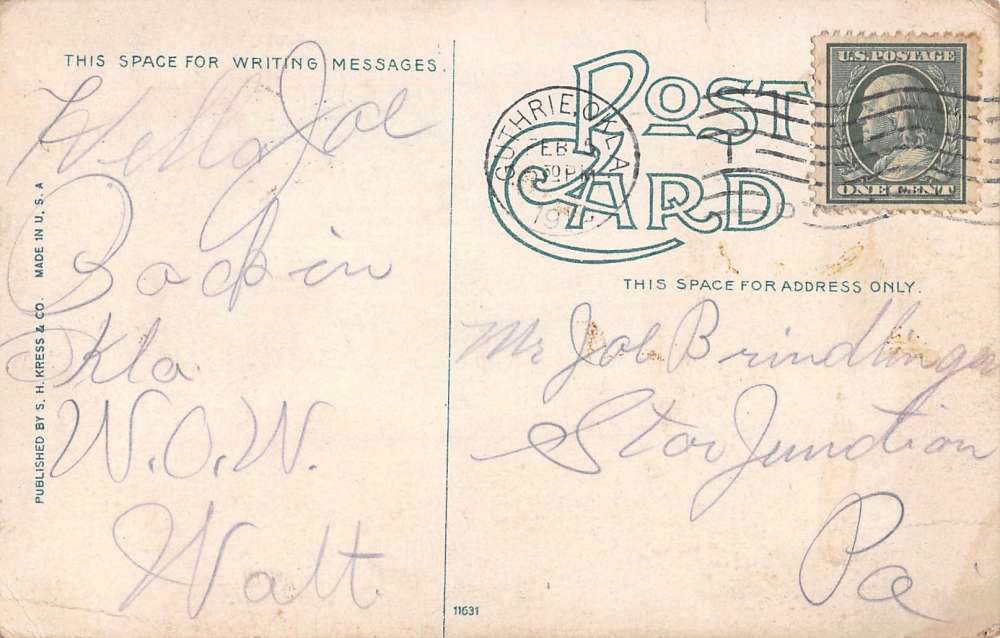 THIS SPACE FOR WRITING MESSAGES.
Hello Joe
Back in
Okla.
W.O.W.
Walt
PUBLISHED BY S. H. KRESS & CO. MADE IN U. S. A
POST CARD
GUTHRIE, OKLA
FEB
30 PM
U.S. POSTAGE
ONE CENT
THIS SPACE FOR ADDRESS ONLY.
Mr Joe Brindlinger
Star Junction
Pa
11631